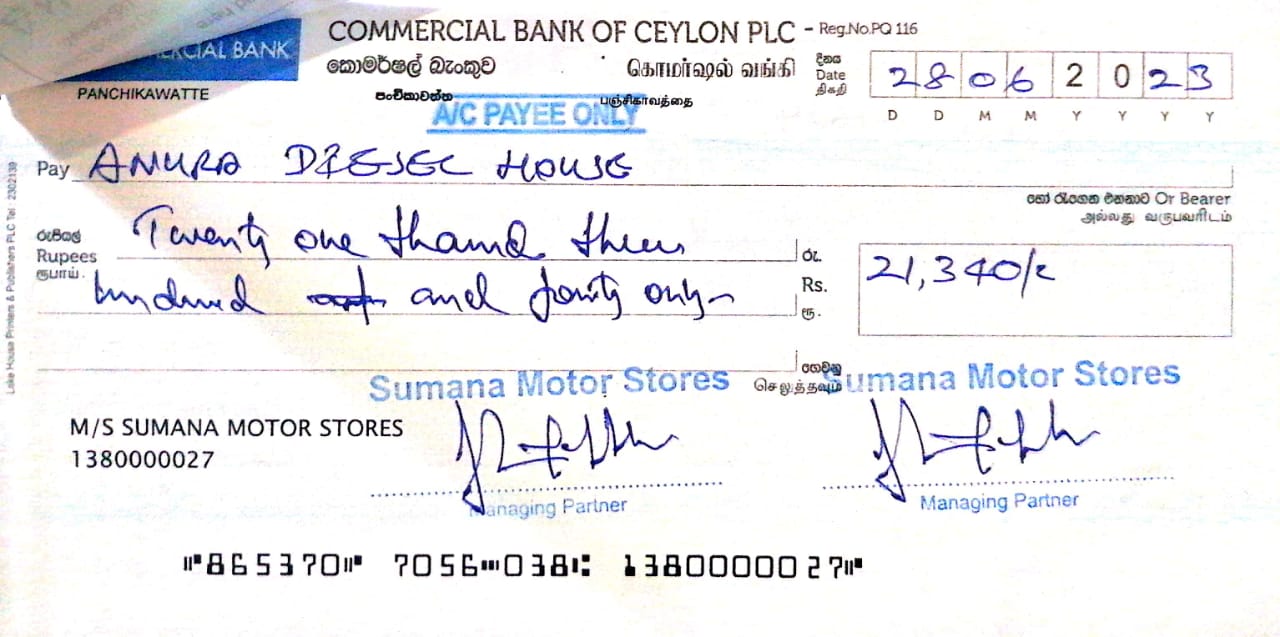 COMMERCIAL BANK OF CEYLON PLC - Reg.No.PQ 116
RCIAL BANK
කොමර්ෂල් බැංකුව கொமர்ஷல் வங்கி
PANCHIKAWATTE පංචිකාවත්ත பஞ்சிகாவத்தை
දිනය
Date 28 06 2023
திகதி
D D M M Y Y Y Y
A/C PAYEE ONLY
Pay ANURA DIESEL HOUSE
හෝ රැගෙන එනනාට Or Bearer
அல்லது வருபவரிடம்
රුපියල් Twenty one thousand three
Rupees
ரூபாய். hundred and fourty only
රු.
Rs. 21,340/=
ரூ.
ගෙවනු
செலுத்தவும்
Sumana Motor Stores Sumana Motor Stores
M/S SUMANA MOTOR STORES
1380000027
Managing Partner Managing Partner
⑈865370⑈ 7056⑉038⑆ 1380000027⑈
Lake House Printers & Publishers PLC Tel : 2302139